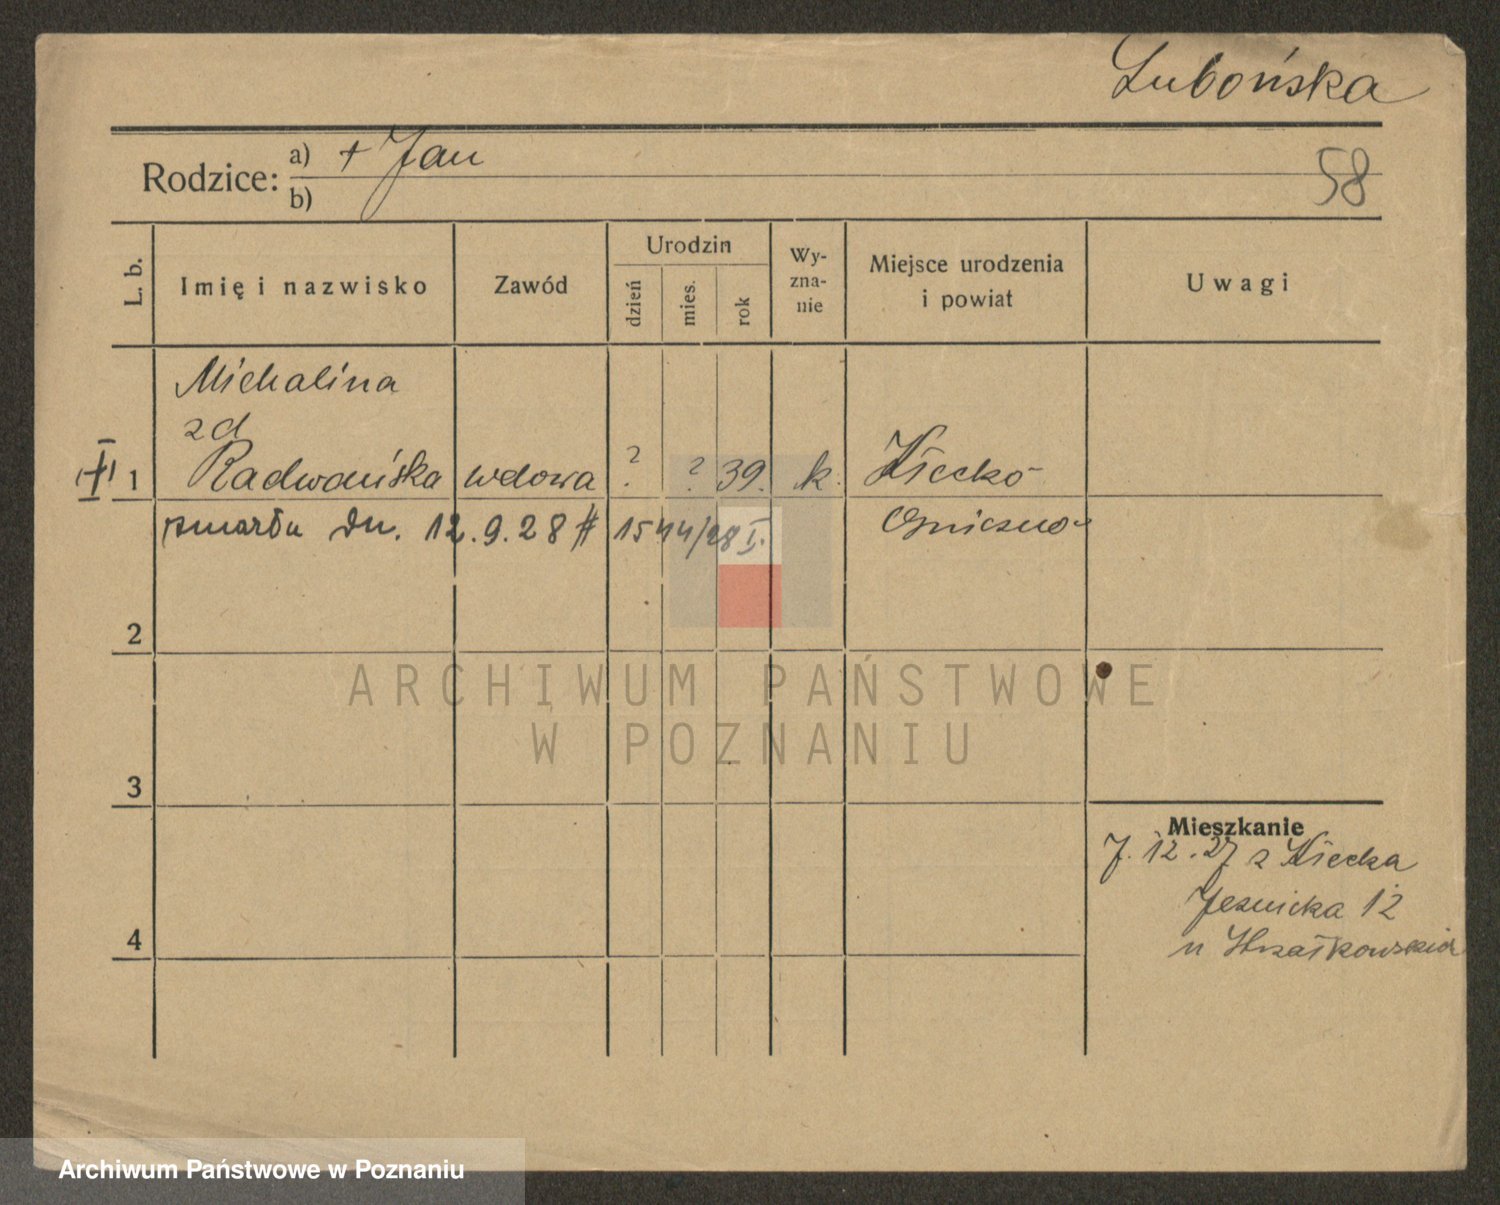 Lubońska
Rodzice: a) + Jan
b)
58
L. b. Imię i nazwisko Zawód Urodzin dzień mies. rok Wy-zna-nie Miejsce urodzenia i powiat Uwagi
Michalina
zd
1 Radwańska wdowa ? ? 39. k. Kłecko
zmarła dn. 12.9.28 # 1544/28 I. Gniezno
2
3
4
Mieszkanie
7.12.27 z Kłecka
Jeznicka 12
u
ARCHIWUM PAŃSTWOWE
W POZNANIU
Archiwum Państwowe w Poznaniu